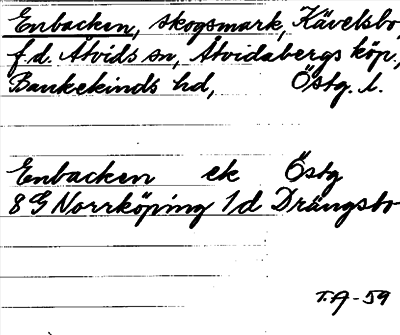 Enbacken, skogsmark, Kävelsbo,
f.d. Åtvids sn, Åtvidabergs köp.,
Bankekinds hd, Östg. l.
Enbacken ek Östg
8 G Norrköping 1d Drängsbo
T.A-59